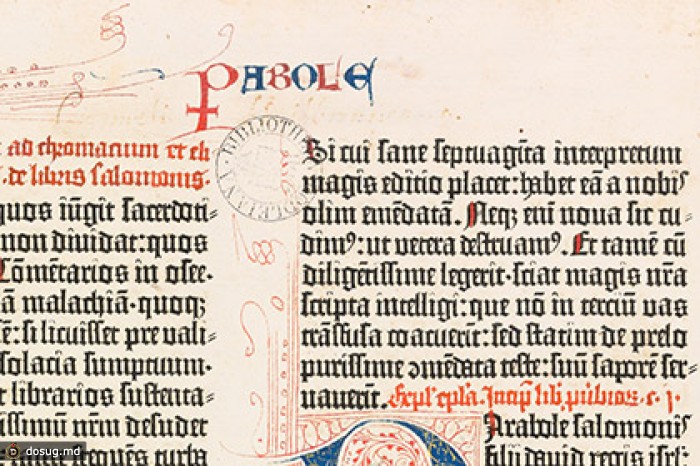 PABOLE
BIBLIOTHE
ad chromatium et eli
de libris salomonis.
quos iūgit sacerdoti-
non dividat: quos
Cōmētarios in osee.
ā malachiā. quoqz
ē: si licuisset pre vali-
solacia sumptuum.
librarios sustenta-
issimū nrm desudet
frequēs turba
Si cui sane septuagīta interpretum
magis editio placet: habet eā a nobis
olim emēdatā. Neqz enī noua sic cu-
dimꝰ: ut vetera destruamꝰ. Et tamē cū
diligētissime legerit. sciat magis nrā
scripta intelligi: que nō in terciū vas
trāsfusa coacuerīt: sed statim de prelo
purissime ↄmēdata teste: suū saporē ser-
uauerīt.
Parabole salomonis
filii david regis isrl:
dosug.md